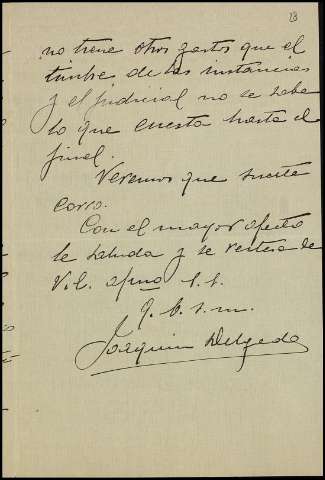 23
no tiene otros gastos que el
timbre de las instancias
y el judicial no se sabe
lo que cuesta hasta el
final.
Veremos que suerte
corro.
Con el mayor afecto
le saluda y se reitera de
Vd. afmo s.s.
q. b. s. m.
Joaquin Delgado